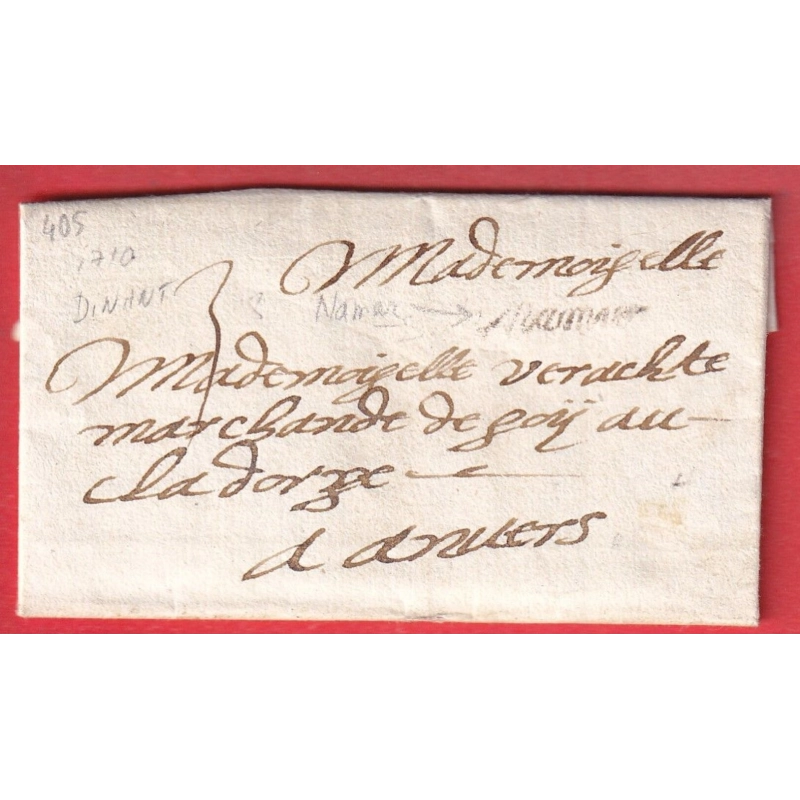 405
1710
DINANT
3
Mademoiselle
Namur
Mademoiselle verachte
marchande de soÿ au
cladorge
a anvers